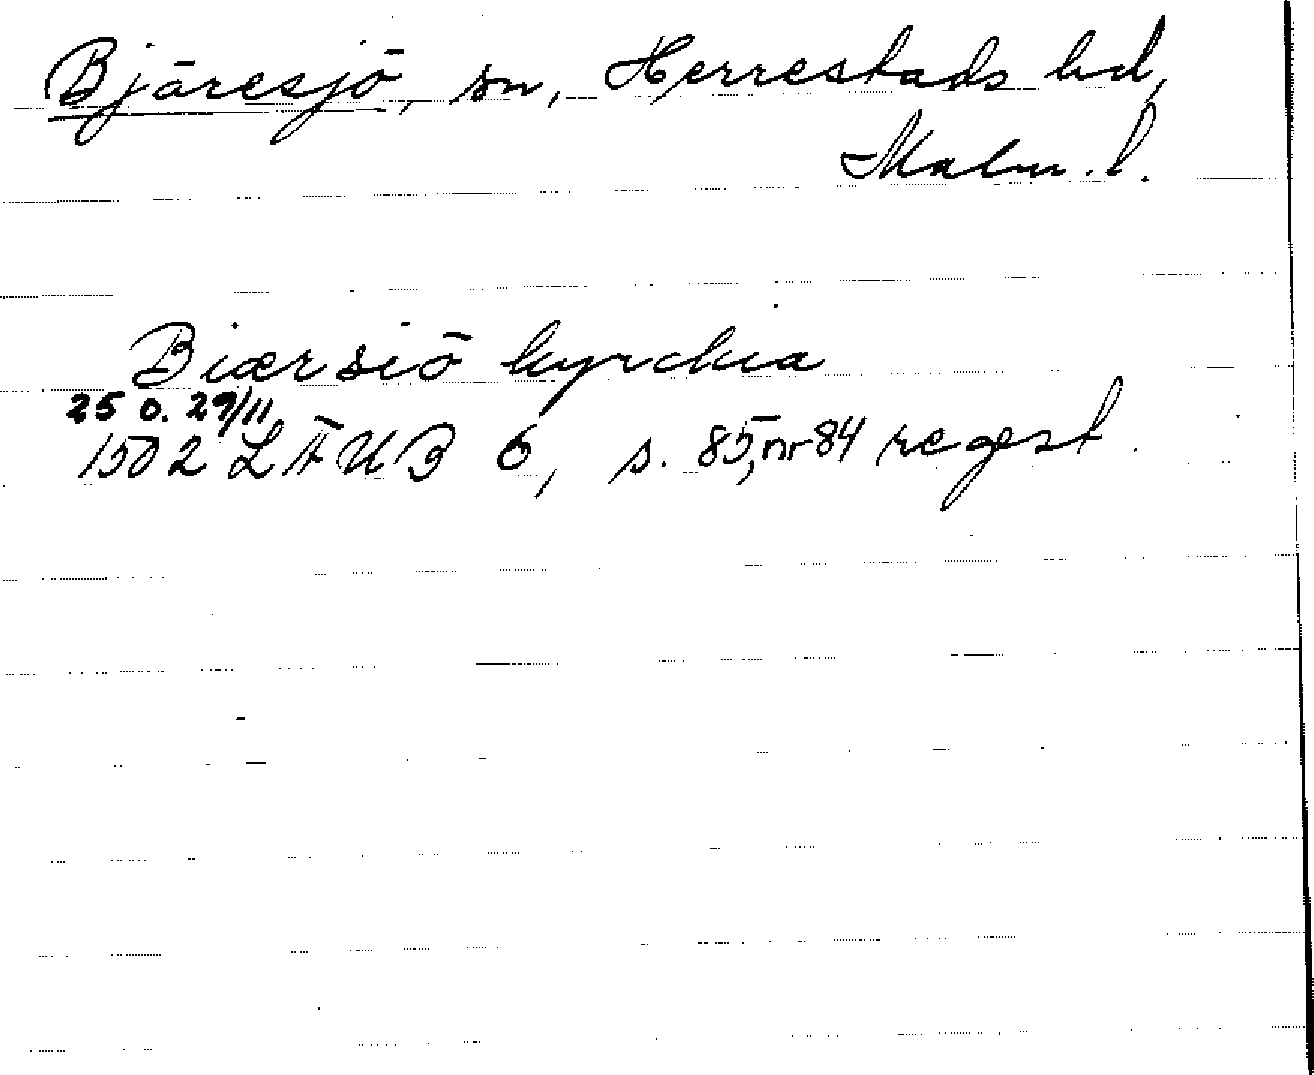 Bjäresjö, sn, Herrestads hd,
Malm. l.
Biærsiö kyrckia
25 o. 29/11
1502 LÄUB 6, s. 85, nr 84 regest